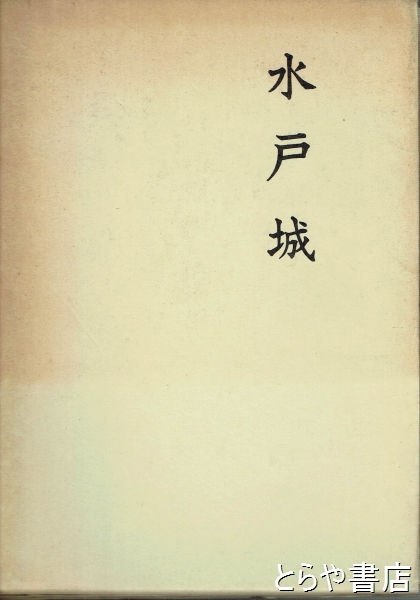 水戸城
とらや書店